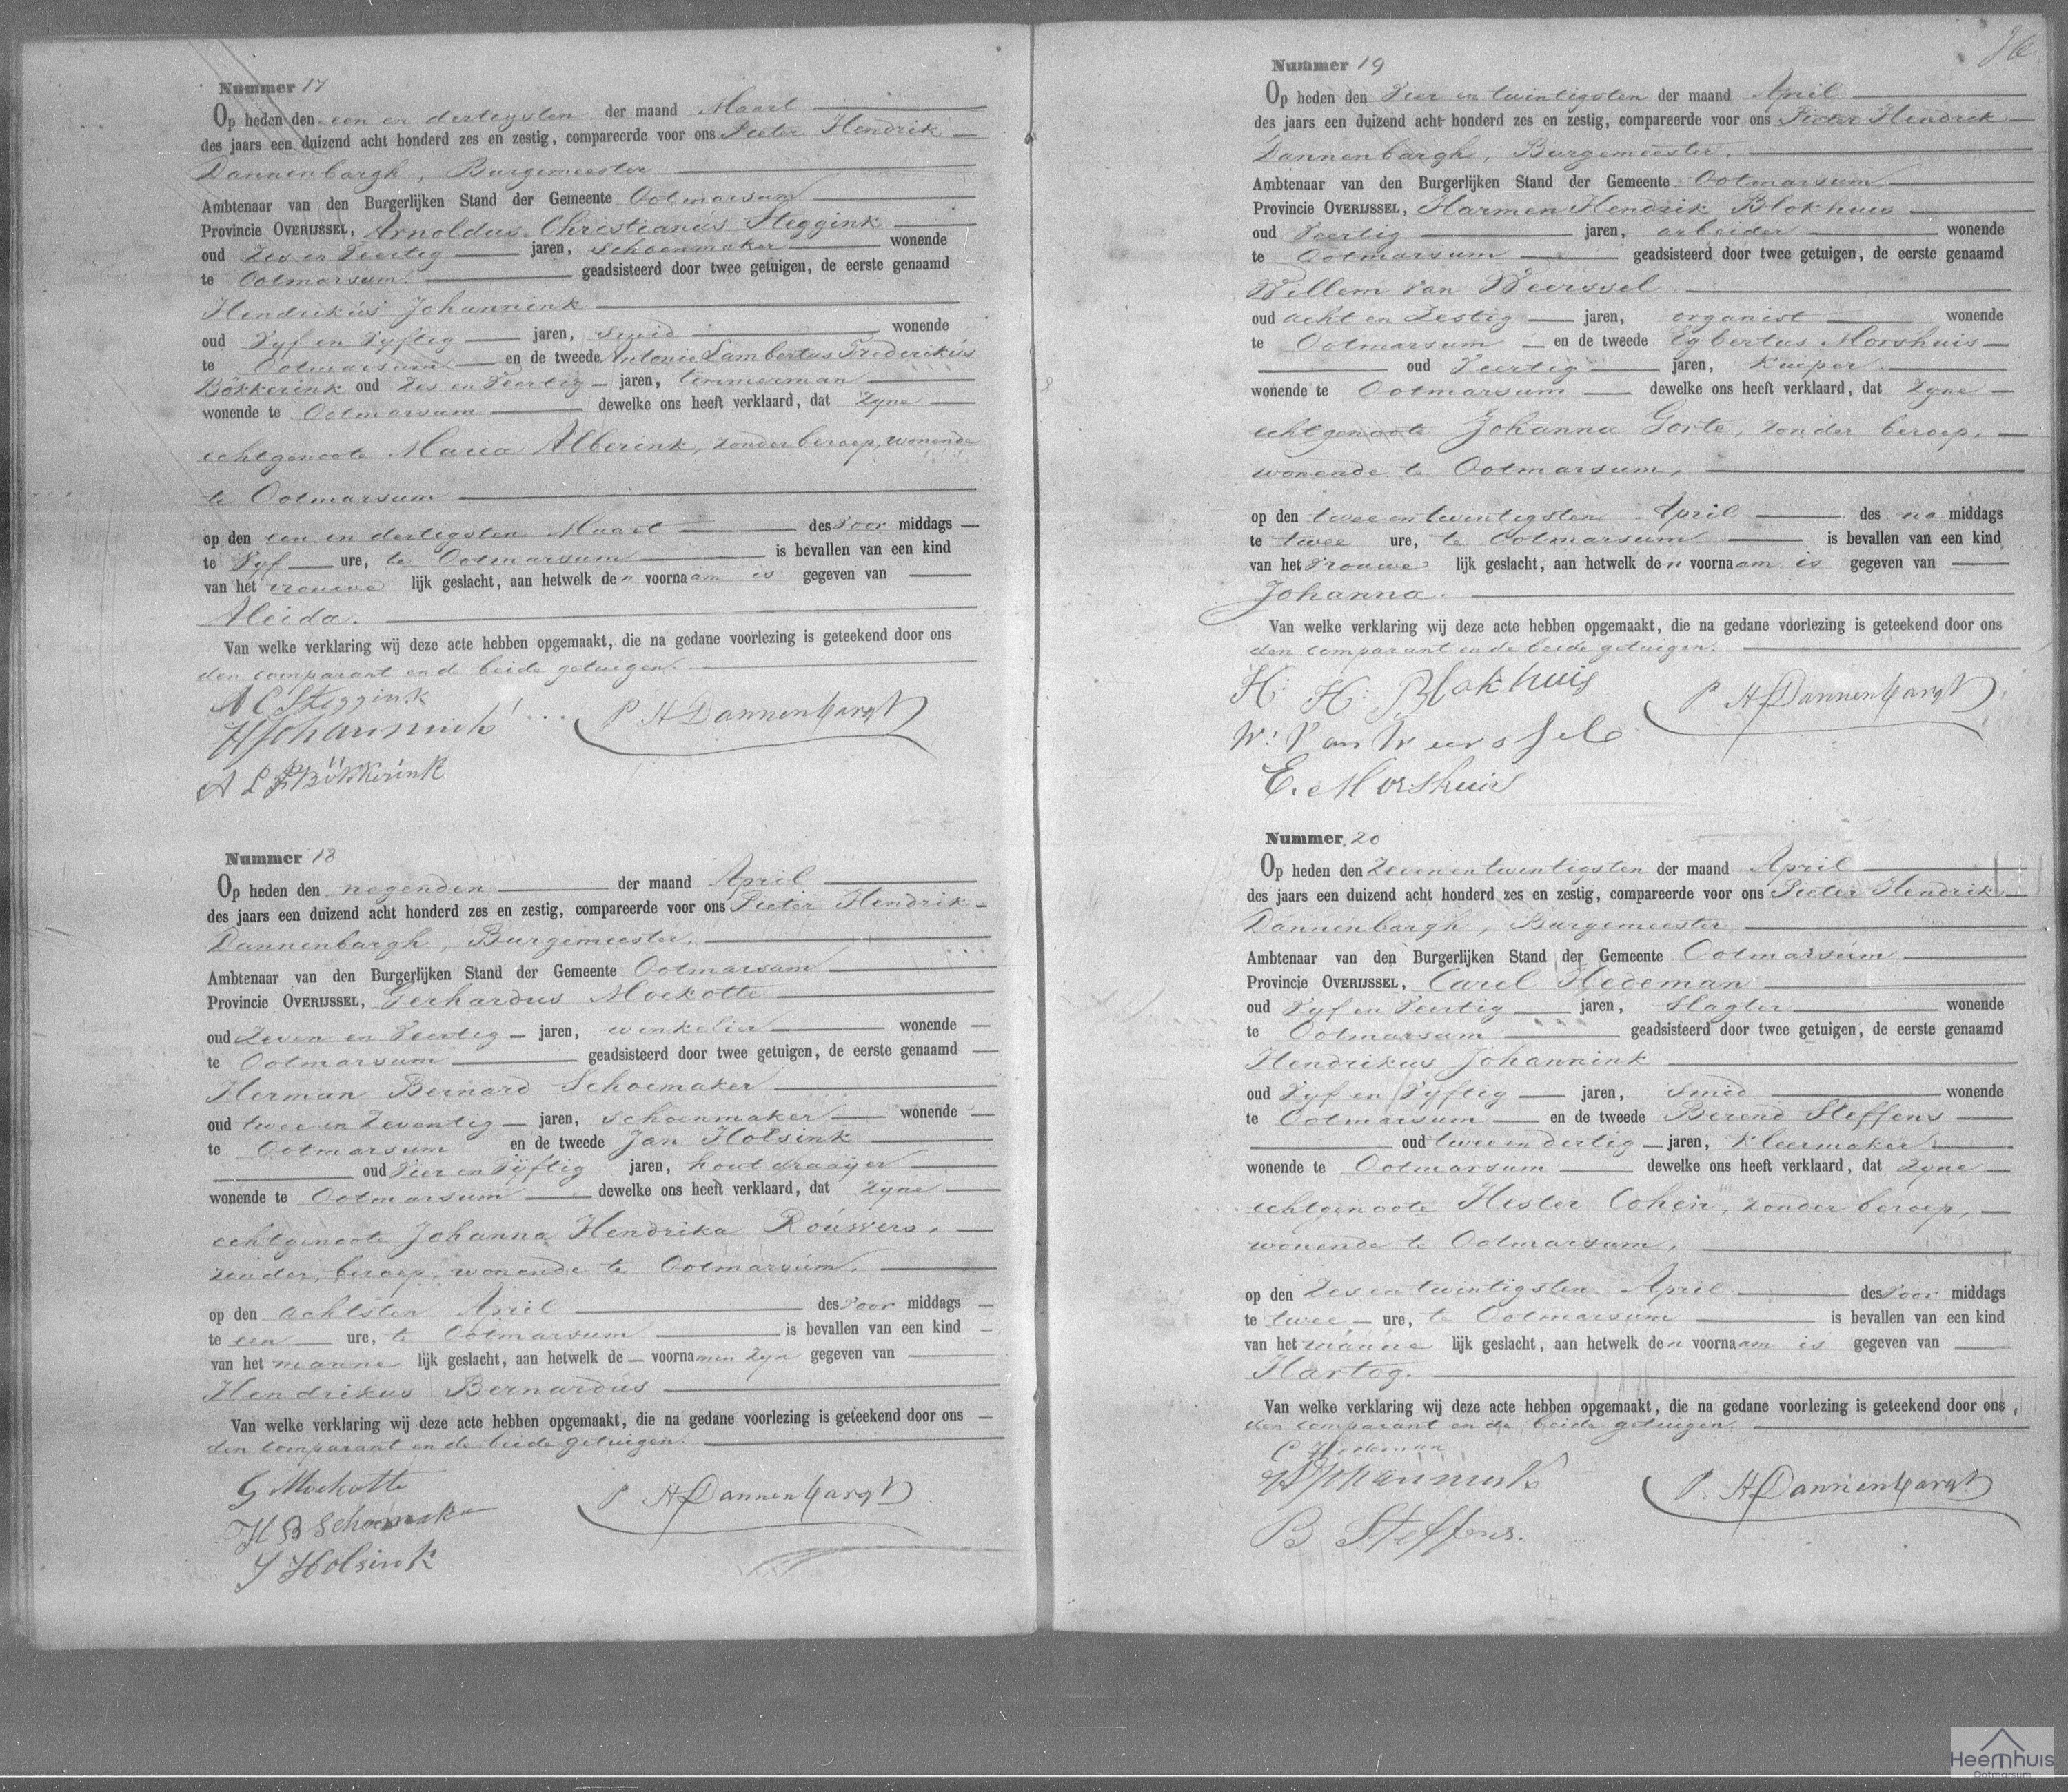 Nummer 17
Op heden den een en dertigsten der maand Maart
des jaars een duizend acht honderd zes en zestig, compareerde voor ons Pieter Hendrik
Dannenbargh, Burgemeester
Ambtenaar van den Burgerlijken Stand der Gemeente Ootmarsum
Provincie OVERIJSSEL, Arnoldus Christianus Steggink
oud Zes en Veertig jaren, schoenmaker wonende
te Ootmarsum. geadsisteerd door twee getuigen, de eerste genaamd
Hendrikus Johannink
oud Vyf en Vyftig jaren, smid wonende
te Ootmarsum en de tweede Antonie Lambertus Frederikus
Bökkerink oud Zes en Veertig jaren, timmerman
wonende te Ootmarsum dewelke ons heeft verklaard, dat Zyne
echtgenoote Maria Alberink, zonder beroep, wonende
te Ootmarsum
op den een en dertigsten Maart des Voor middags
te Vyf ure, te Ootmarsum is bevallen van een kind
van het vrouwe lijk geslacht, aan hetwelk den voornaam is gegeven van
Aleida.
Van welke verklaring wij deze acte hebben opgemaakt, die na gedane voorlezing is geteekend door ons
den comparant en de beide getuigen.
A C Steggink
H Johannink P H Dannenbargh
A L F Bökkerink
Nummer 18
Op heden den negenden der maand April
des jaars een duizend acht honderd zes en zestig, compareerde voor ons Pieter Hendrik
Dannenbargh, Burgemeester.
Ambtenaar van den Burgerlijken Stand der Gemeente Ootmarsum
Provincie OVERIJSSEL, Gerhardus Moekotte
oud Zeven en Veertig jaren, winkelier wonende
te Ootmarsum geadsisteerd door twee getuigen, de eerste genaamd
Herman Bernard Schoemaker
oud twee en Zeventig jaren, schoenmaker wonende
te Ootmarsum en de tweede Jan Holsink
oud Vier en Vyftig jaren, houtdraayer
wonende te Ootmarsum dewelke ons heeft verklaard, dat Zyne
echtgenoote Johanna Hendrika Rouwers,
zonder beroep, wonende te Ootmarsum,
op den achtsten April des Voor middags
te een ure, te Ootmarsum is bevallen van een kind
van het manne lijk geslacht, aan hetwelk de voornamen Zyn gegeven van
Hendrikus Bernardus
Van welke verklaring wij deze acte hebben opgemaakt, die na gedane voorlezing is geteekend door ons
den comparant en de beide getuigen.
G Moekotte
H B Schoemaker P H Dannenbargh
J Holsink
Nummer 19
Op heden den Vier en twintigsten der maand April
des jaars een duizend acht honderd zes en zestig, compareerde voor ons Pieter Hendrik
Dannenbargh, Burgemeester.
Ambtenaar van den Burgerlijken Stand der Gemeente Ootmarsum
Provincie OVERIJSSEL, Harmen Hendrik Blokhuis
oud Veertig jaren, arbeider wonende
te Ootmarsum geadsisteerd door twee getuigen, de eerste genaamd
Willem van Weerssel
oud acht en Zestig jaren, organist wonende
te Ootmarsum en de tweede Egbertus Morshuis
oud Veertig jaren, Kuiper
wonende te Ootmarsum dewelke ons heeft verklaard, dat Zyne
echtgenoote Johanna Gorte, zonder beroep,
wonende te Ootmarsum,
op den twee en twintigsten April des na middags
te twee ure, te Ootmarsum is bevallen van een kind
van het Vrouwe lijk geslacht, aan hetwelk den voornaam is gegeven van
Johanna.
Van welke verklaring wij deze acte hebben opgemaakt, die na gedane voorlezing is geteekend door ons
den comparant en de beide getuigen.
H: H: Blokhuis P H Dannenbargh
W: Van Weerssel
E. Morshuis
Nummer 20
Op heden den Zeven en twintigsten der maand April
des jaars een duizend acht honderd zes en zestig, compareerde voor ons Pieter Hendrik
Dannenbargh, Burgemeester
Ambtenaar van den Burgerlijken Stand der Gemeente Ootmarsum
Provincie OVERIJSSEL, Carel Hedeman
oud Vyf en Veertig jaren, Slagter wonende
te Ootmarsum geadsisteerd door twee getuigen, de eerste genaamd
Hendrikus Johannink
oud Vyf en Vyftig jaren, smid wonende
te Ootmarsum en de tweede Berend Steffens
oud twee en dertig jaren, Kleermaker
wonende te Ootmarsum dewelke ons heeft verklaard, dat Zyne
echtgenoote Hester Cohen, zonder beroep,
wonende te Ootmarsum,
op den Zes en twintigsten April des Voor middags
te twee ure, te Ootmarsum is bevallen van een kind
van het manne lijk geslacht, aan hetwelk den voornaam is gegeven van
Hartog.
Van welke verklaring wij deze acte hebben opgemaakt, die na gedane voorlezing is geteekend door ons,
den comparant en de beide getuigen.
C Hedeman
H Johannink P. H Dannenbargh
B Steffens.
Heemhuis
Ootmarsum